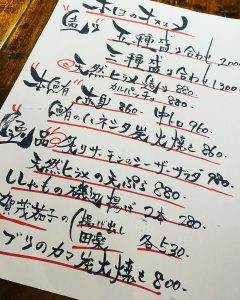 本日のオススメ
五種盛り合わせ 2,000
三種盛り合わせ 1,300
天然ヒラメ
カルパッチョ 880.
本鮪 赤身 860. 中トロ 960.
鮪のハネシタ炭火焼き 860.
逸品 炙りサーモンシーザーサラダ 880.
天然ヒラメの天ぷら 880.
ししゃもの磯辺揚げ 2本 280.
賀茂茄子の 揚げ出し
田楽 各530.
ブリのカマ炭火焼き 800.